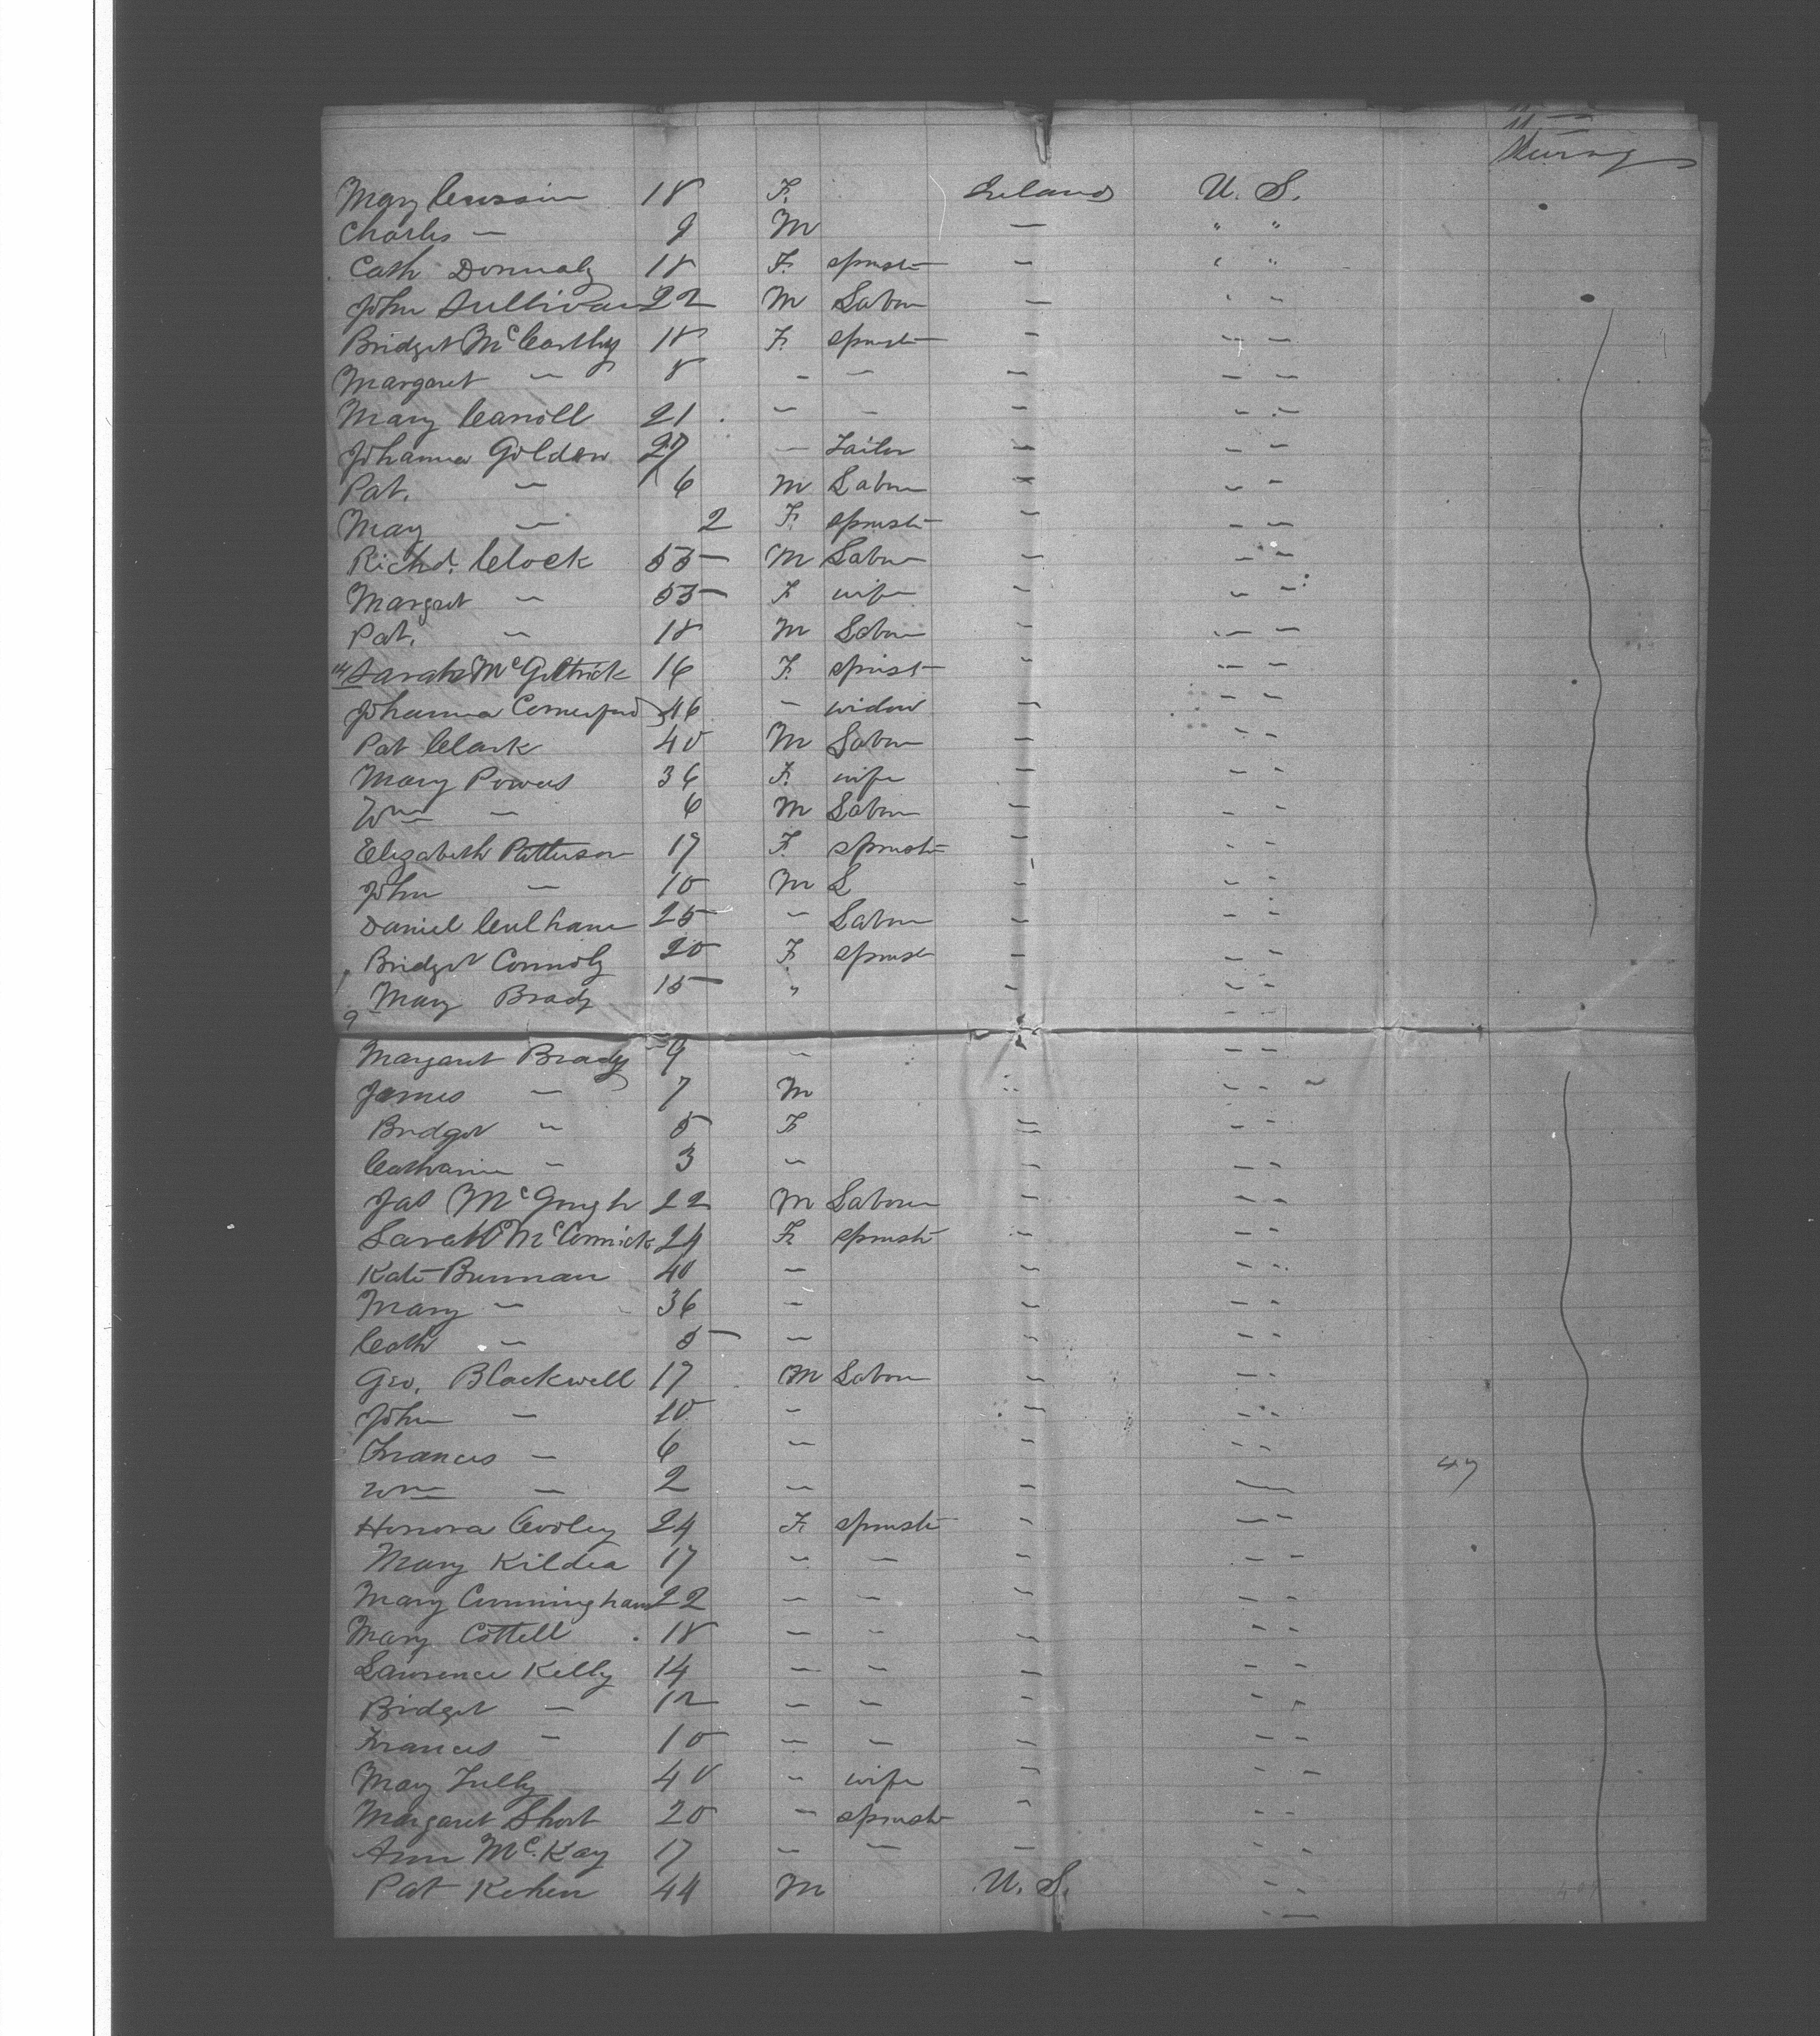 Mary 18 F. Ireland U. S.
Charles — 9 M — " "
Cath Donnaly 18 F. spinst — " "
John Sullivan 22 M Labou — " "
Bridget McCarthy 18 F. spinst — — —
Margaret — 8 — — — — —
Mary Carroll 21 — — — — —
Johanna Golden 27 — Tailor — — —
Pat. — 6 M Labou — — —
Mary — 2 F. spinst — — —
Richd. Clock 55 M Labou — — —
Margret — 55 F wife — — —
Pat. — 18 M Labou — — —
Sarah McGettrick 16 F. spinst — — —
Johanna Comerford 46 — widow — — —
Pat Clark 40 M Labou — — —
Mary Powers 36 F. wife — — —
Wm — 6 M Labou — — —
Elizabeth Patterson 17 F. spinst — — —
John — 10 M L — — —
Daniel Culhane 25 — Labou — — —
Bridget Connoly 20 F spinst — — —
Mary Brady 15 " — — —
9
Margaret Brady 9 — — —
James — 7 M — — —
Bridget — 5 F — — —
Catharine — 3 — — — —
Jas McGough 22 M Labour — — —
Sarah McCormick 24 F spinst — — —
Kate Brennan 40 — — — —
Mary — 36 — — — —
Cath — 5 — — — —
Geo. Blackwell 17 M Labou — — —
John — 10 — — — —
Francis — 6 — — — —
47
Wm — 2 — — —
Honora Cooley 24 F spinst — — —
Mary Kildea 17 — — — — —
Mary Cunningham 22 — — — — —
Mary Cottell 18 — — — — —
Lawrence Kelly 14 — — — — —
Bridget — 12 — — — — —
Frances — 10 — — — — —
Mary Tully 40 — wife — — —
Margaret Short 20 — spinst — — —
Ann McKay 17 — — — — —
Pat Kehen 44 M U. S. — —